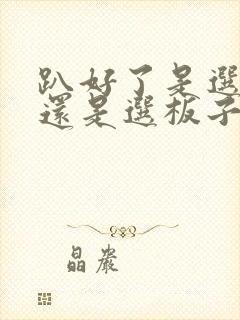 趴好了是選
還是選板子
晶嚴